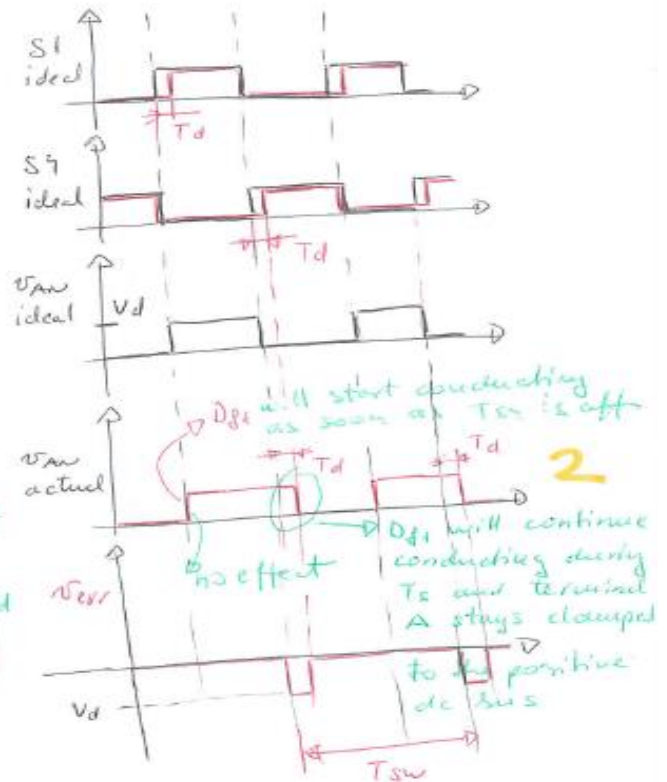 S1
ideal
Td
S4
ideal
Td
VAN
ideal
Vd
Df1 will start conducting
as soon as Ts4 is off
VAN
actual
Td
Td
2
no effect
Df1 will continue
conducting during
Ts and terminal
A stays clamped
to the positive
dc bus
Verr
Vd
Tsw